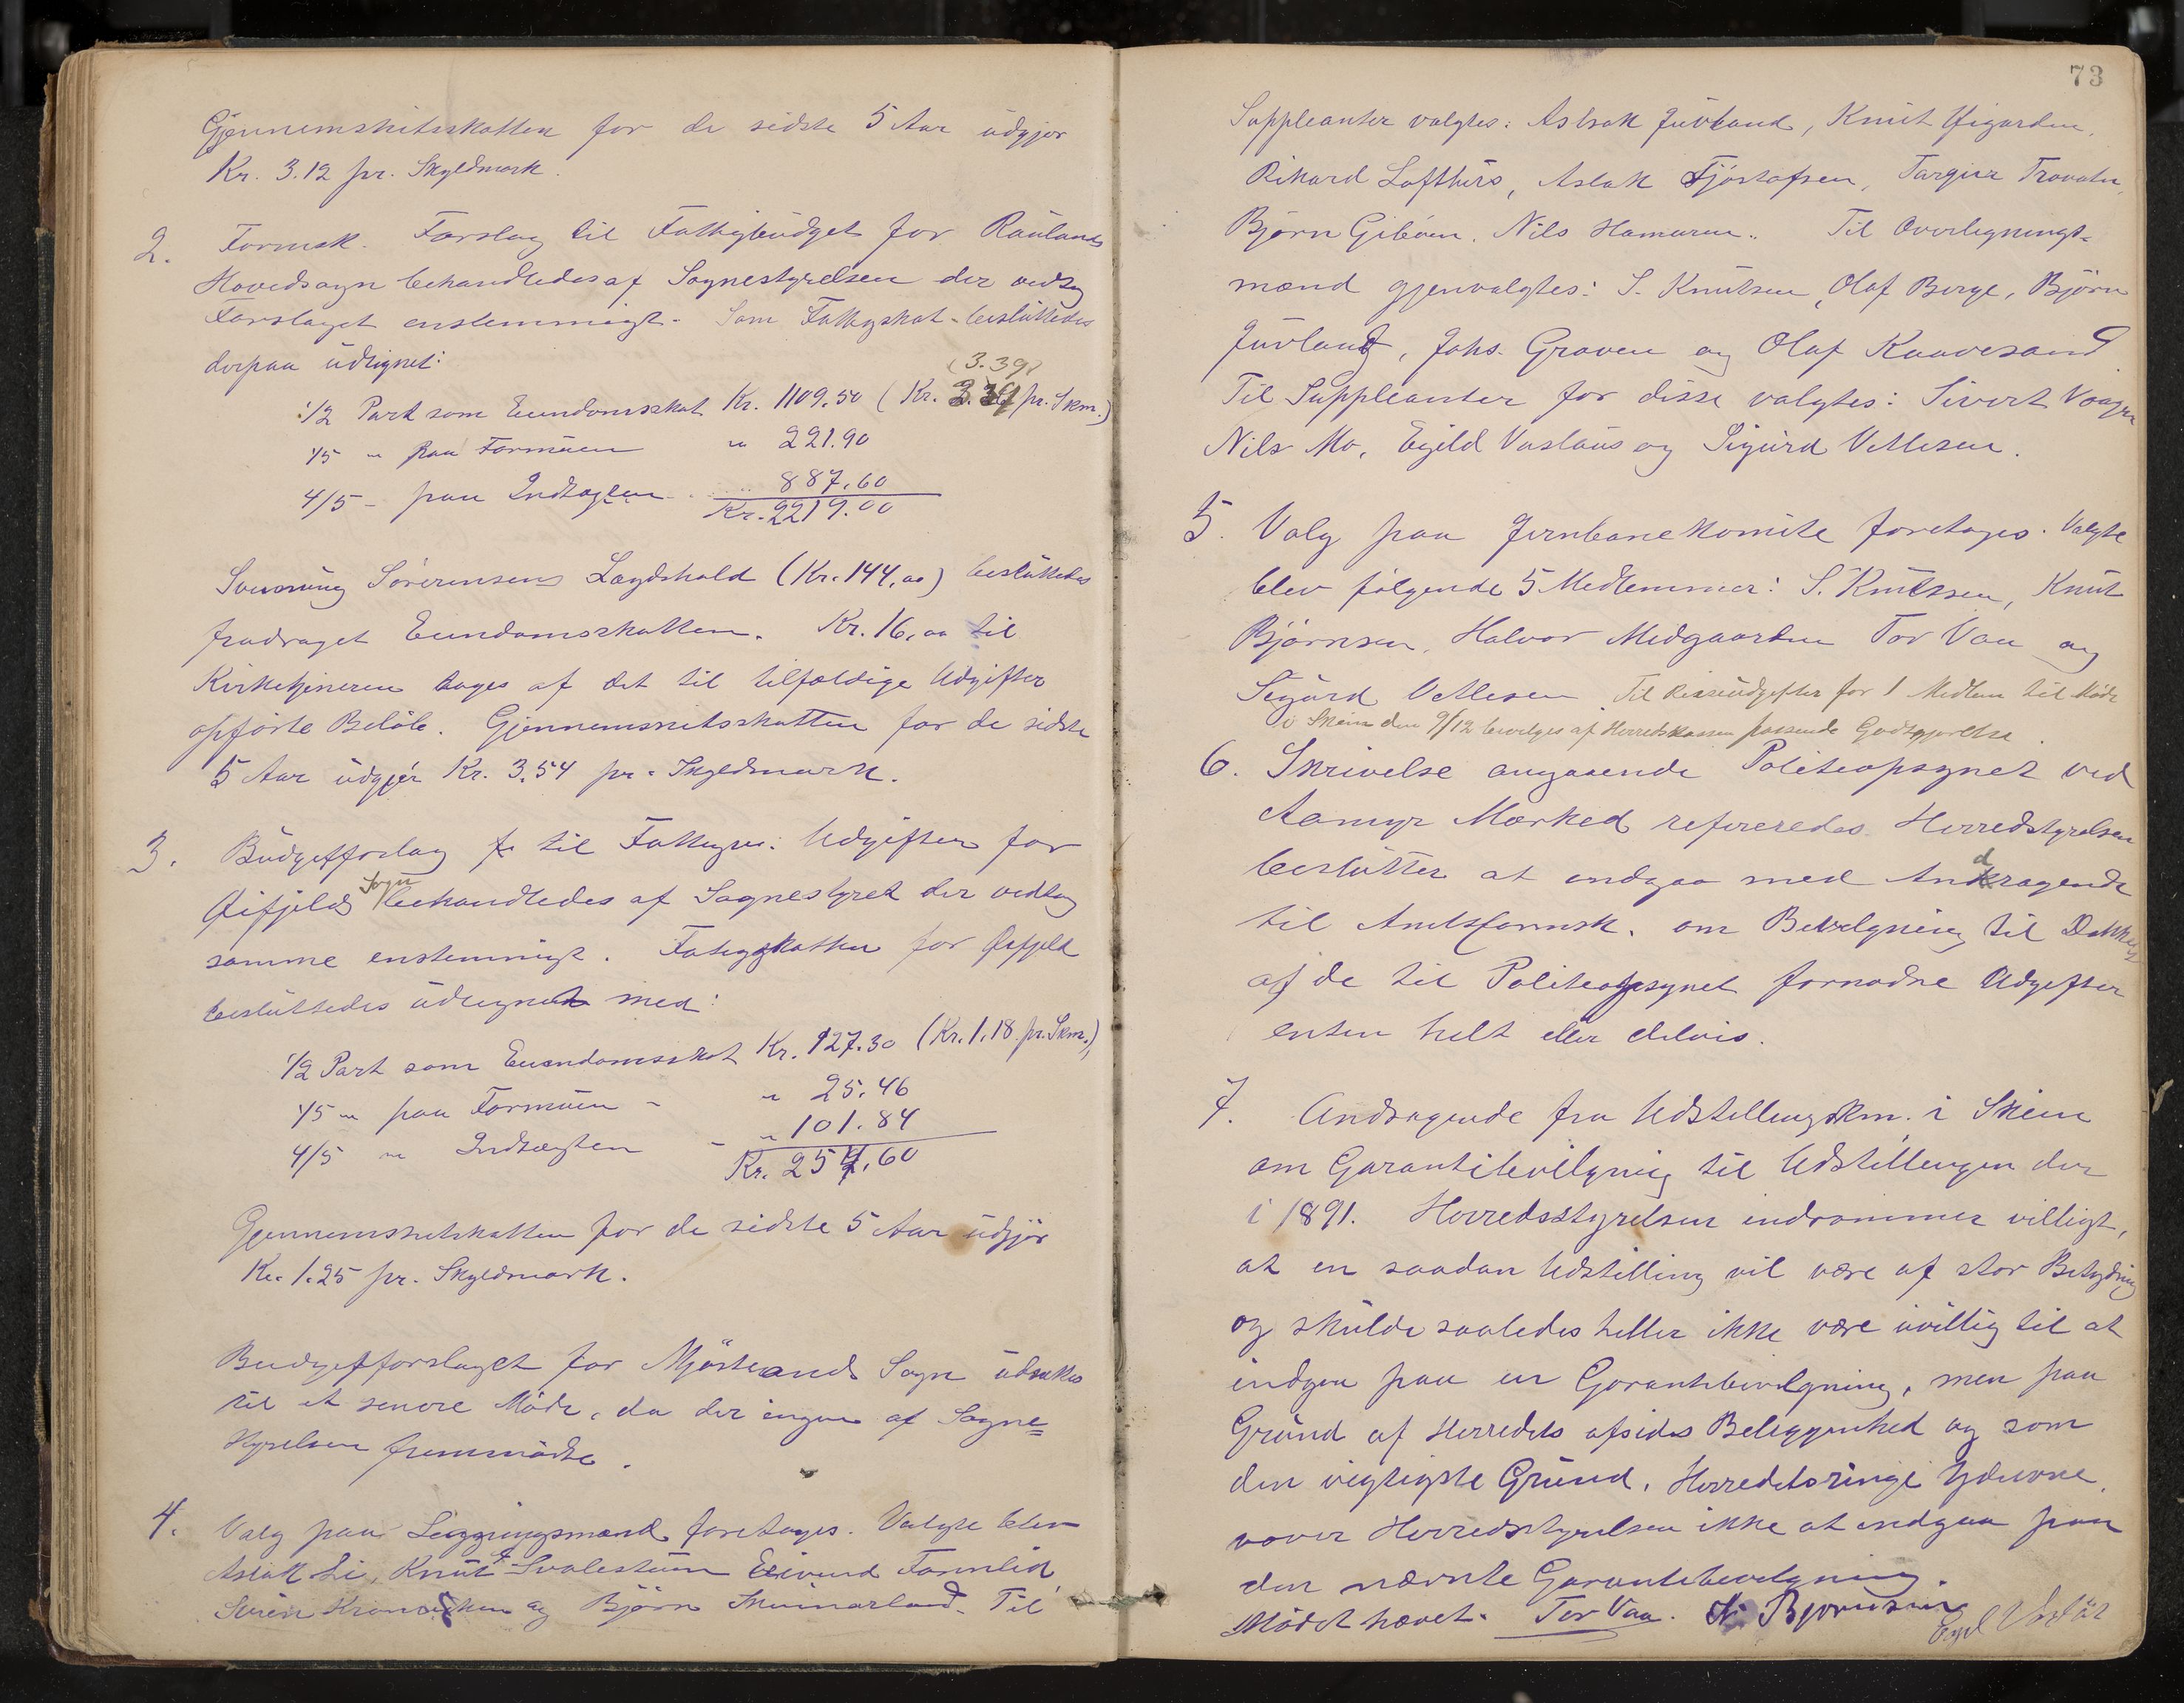 Gjennemsnitsskatten for de sidste 5 Aar udgjør
Kr. 3.12 pr. Skyldmark.
2. Formsk. Forslag til Fattigbudget for Raulands
Hovedsogn behandledes af Sognestyrelsen der vedtog
Forslaget enstemmigt. Som Fattigskat besluttedes
derpaa udlignet:
(3.39)
1/2 Part som Eiendomsskat Kr. 1109.50 (Kr. 3.39 pr. Skm.)
1/5 " paa Formuen " 221.90
4/5 - paa Indtægten " 887.60
Kr. 2219.00
Sveinung Sørensens Lægdshold (Kr. 144,00) besluttedes
fradraget Eiendomsskatten. Kr. 16,00 til
Kirketjeneren tages af det til tilfældige Udgifter
opførte Beløb. Gjennemsnitsskatten for de sidste
5 Aar udgjør Kr. 3.54 pr. Skyldmark.
3. Budgetforslag til Fattigv. Udgifter for
Øifjelds Sogn behandledes af Sognestyret der vedtog
samme enstemmigt. Fattigskatten for Øifjeld
besluttedes udlignet med:
1/2 Part som Eiendomsskat Kr. 127.30 (Kr. 1.18 pr. Skm.),
1/5 " paa Formuen - " 25.46
4/5 " Indtægten - " 101.84
Kr. 254,60
Gjennemsnitskatten for de sidste 5 Aar udgjør
Kr. 1.25 pr. Skyldmark.
Budgetforslaget for Mjøstrands Sogn udsættes
til et senere Møde, da der ingen af Sogne=
styrelsen fremmødte.
4. Valg paa Lægningsmænd foretages. Valgte blev
Aslak Li, Knut Svalestuen Eivind Formlid
Kromviken og Björn Skinnarland. Til
73
Suppleanter valgtes: Aslak Juvland, Knut Øigarden,
Rikard Lofthus, Aslak Tjøstofsen, Targier Travatn,
Bjørn Gibøen, Nils Hamaren. Til Overligningt-
mænd gjenvalgtes: S. Knutsen, Olaf Berge, Bjørn
Juvland, Johs. Graven og Olaf Kaavesand
Til Suppleanter for disse valgtes: Sivert Vaagen
Nils Mo, Egild Vaslaus og Sigurd Vetlesen.
5. Valg paa Jernbanekomite foretages. Valgte
blev følgende 5 Medlemmer: S. Knutsen, Knut
Bjørnsen, Halvor Midgaarden Tor Vaa og
Sigurd Vetlesen. Til Reiseudgifter for 1 Medlem til Møde
i Skien den 9/12 bevilges af Herredskassen passende Godtgjørelse.
6. Skrivelse angaaende Politiopsynet ved
Aamyr Marked refereredes. Herredstyrelsen
beslutter at indgaa med Andragende
til Amtsformsk. om Bevilgning til Dækkelse
af de til Politiopsynet fornødne Udgifter
enten helt eller delvis.
7. Andragende fra Udstillingskm. i Skien
om Garantibevilgning til Udstillingen der
i 1891. Herredsstyrelsen indrømmer villigt,
at en saadan Udstilling vil være af stor Betydning
og skulde saaledes heller ikke være uvillig til at
indgaa paa en Garantibevilgning, men paa
Grund af Herredets afsides Beliggenhed og som
den vigtigste Grund, Herredets ringe Ydeevne,
vover Herredsstyrelsen ikke at indgaa paa
den nævnte Garantibevilgning.
Mødet hævet. Tor Vaa. K. Bjørnsen